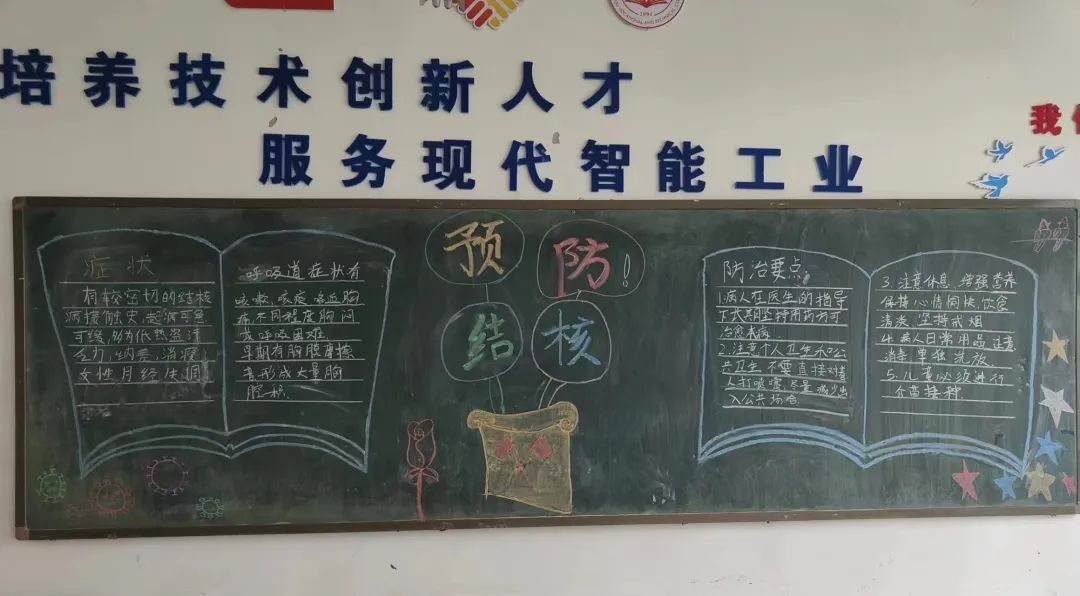 培养技术创新人才
服务现代智能工业
我
预防!
结核
症状
有较密切的结核
病接触史,起病可急
可缓,多为低热盗汗
乏力,纳差,消瘦
女性月经失调
呼吸道症状有
咳嗽,咳痰
痛不同程度胸闷
或呼吸困难
早期有胸膜摩擦
音形成大量胸
腔积
防治要点
1.病人在医生的指导
下长期坚持用药方可
治愈本病
2.注意个人卫生和公
共卫生 不要直接对着
人打喷嚏,尽量减少出
入公共场合
3.注意休息 增强营养
保持心情愉快,饮食
清淡 坚持戒烟
4.病人日常用品注意
消毒 单独洗放
5.儿童必须进行
介苗接种